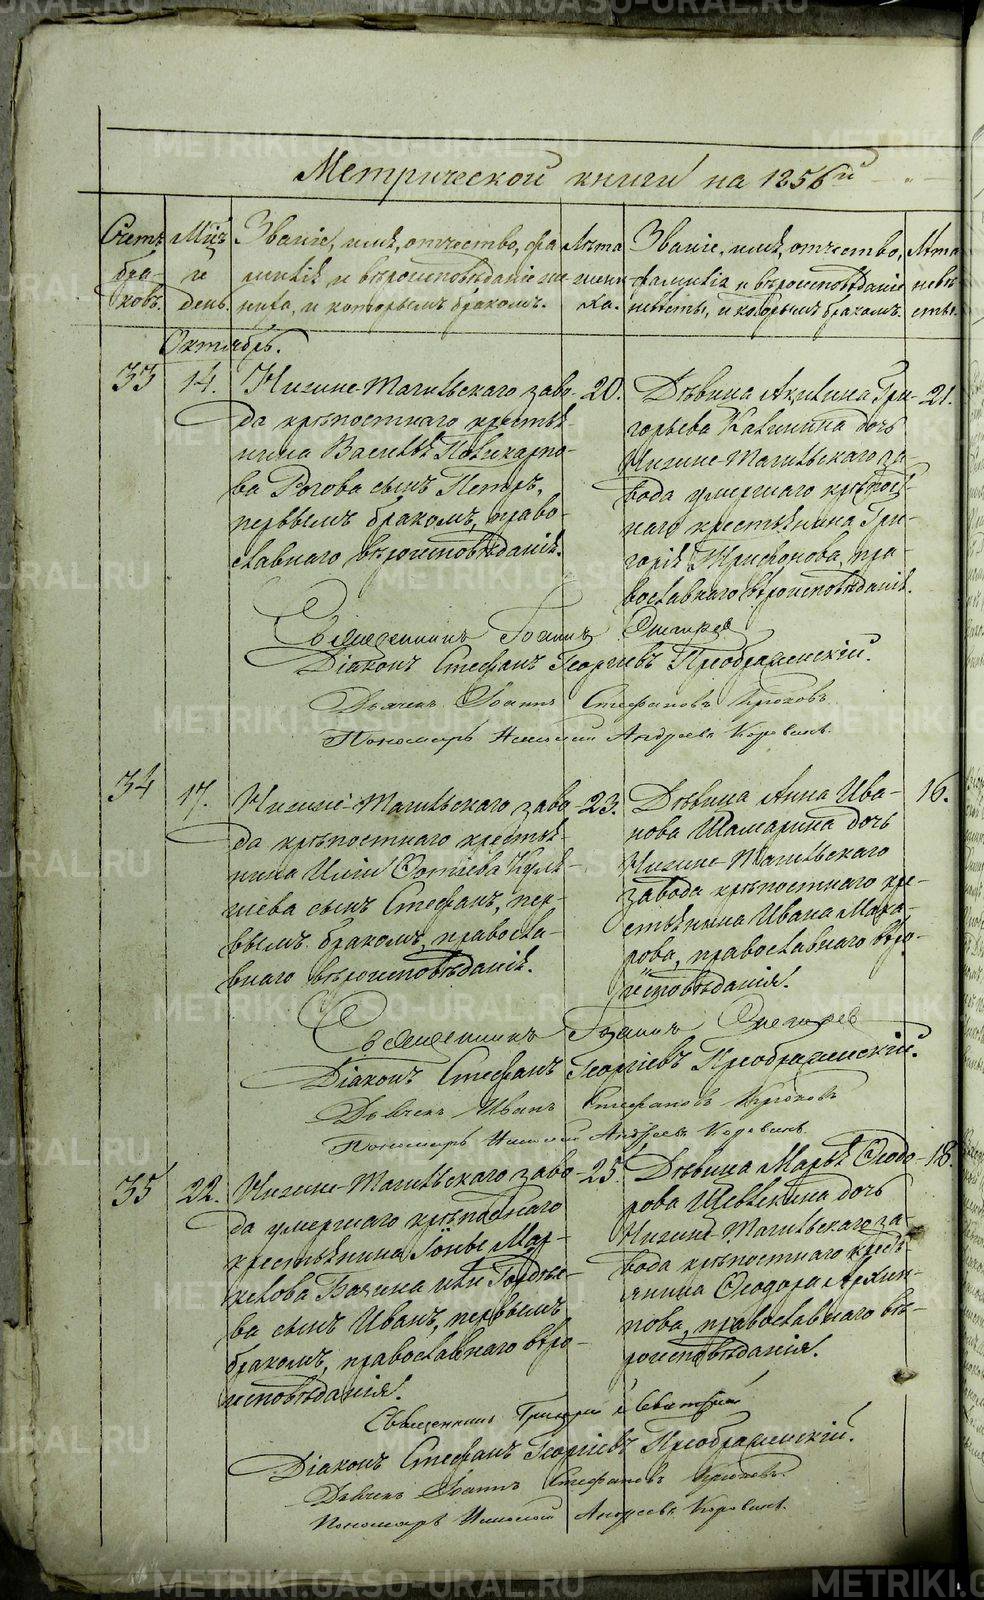 METRIKI.GASO-URAL.RU
Метрической книги на 1856й
Счетъ бра- ковъ.
Мѣц. и день.
Званіе, имя, отчество, фа-
милія и вѣроисповѣданіе же-
ниха, и которымъ бракомъ.
Лѣта жени- ха.
Званіе, имя, отчество,
фамилія и вѣроисповѣданіе
невѣсты, и которымъ бракомъ.
Лѣта невѣ- сты.
Октябрь.
33 14.
Нижне-Тагильскаго заво-
да крѣпостнаго крестья-
нина Василья Поликарпо-
ва Рогова сынъ Петръ,
первымъ бракомъ, право-
славнаго вѣроисповѣданія.
20.
Дѣвица Акилина Гри-
горьева Калинина дочь
Нижне-Тагильскаго за-
вода умершаго крѣпост-
наго крестьянина Гри-
горія Трифонова, пра-
вославнаго вѣроисповѣданія.
21.
Священникъ Іоаннъ
Діаконъ Стефанъ Георгіевъ Преображенскій.
Дьячекъ Іоаннъ Стефановъ Крюковъ.
Пономарь Андреевъ Коровинъ.
34 17.
Нижне-Тагильскаго заво-
да крѣпостнаго крестья-
нина Ильи Фотіева Куль-
шева сынъ Стефанъ, пер-
вымъ бракомъ, правосла-
внаго вѣроисповѣданія.
23.
Дѣвица Анна Ива-
нова Шамарина дочь
Нижне-Тагильскаго
завода крѣпостнаго кре-
стьянина Ивана Мака-
рова, православнаго вѣро-
исповѣданія.
16.
Священникъ Іоаннъ
Діаконъ Стефанъ Георгіевъ Преображенскій.
Дьячекъ Иванъ Стефановъ Крюковъ
Пономарь Андреевъ Коровинъ.
35 22.
Нижне-Тагильскаго заво-
да умершаго крѣпостнаго
крестьянина Іоны Мар-
келова сынъ Иванъ, первымъ
бракомъ, православнаго вѣро-
исповѣданія.
25.
Дѣвица Марья Ѳеодо-
рова Щевелкина дочь
Нижне-Тагильскаго за-
вода крѣпостнаго кресть-
янина Ѳеодора Архип-
пова, православнаго вѣ-
роисповѣданія.
18.
Священникъ Григорій
Діаконъ Стефанъ Георгіевъ Преображенскій.
Дьячекъ Іоаннъ Стефановъ Крюковъ.
Пономарь Андреевъ Коровинъ.